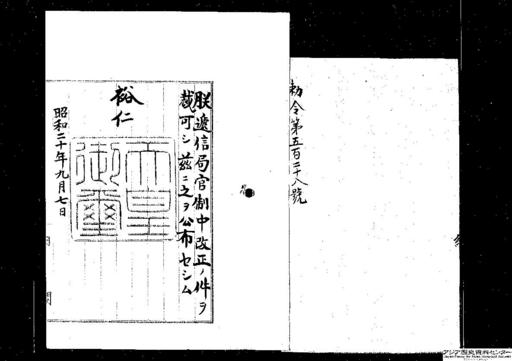 勅令第五百二十八號
朕遞信局官制中改正ノ件ヲ
裁可シ茲ニ之ヲ公布セシム
裕仁
天皇
御璽
昭和二十年九月七日
内閣
アジア歴史資料センター